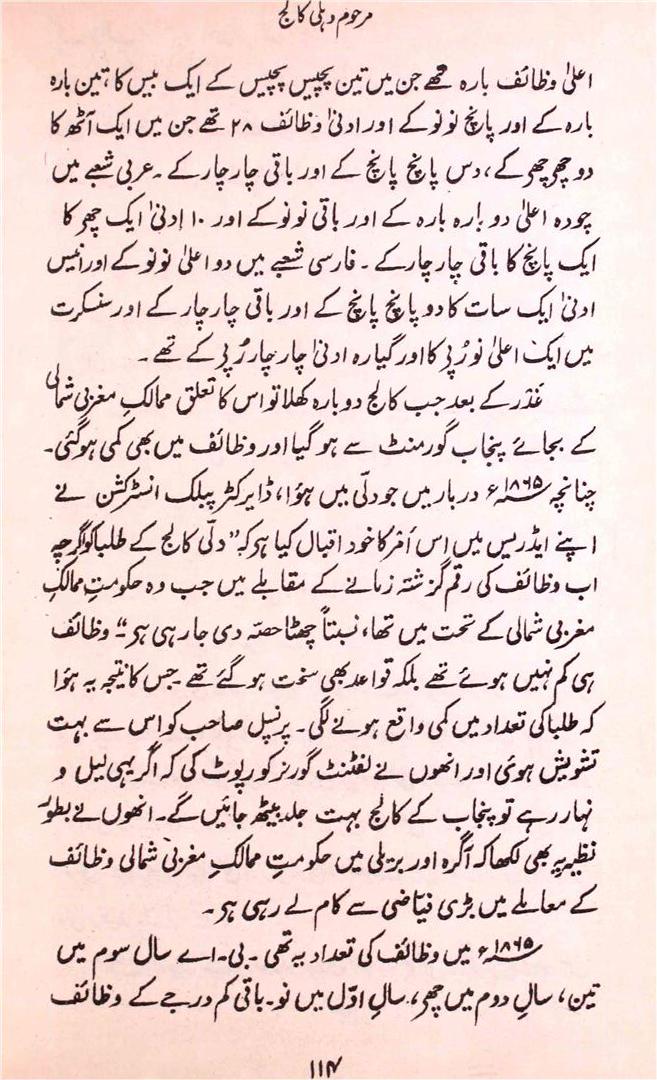 مرحوم دہلی کالج
اعلیٰ وظائف بارہ تھے جن میں تین پچیس پچیس کے ایک بیس کا، تین بارہ
بارہ کے اور پانچ نو نو کے اور ادنیٰ وظائف ۲۸ تھے جن میں ایک آٹھ کا
دو چھ چھ کے، دس پانچ پانچ کے اور باقی چار چار کے ۔ عربی شعبے میں
چودہ اعلیٰ دو بارہ بارہ کے اور باقی نو نو کے اور ۱۰ ادنیٰ ایک چھ کا
ایک پانچ کا باقی چار چار کے ۔ فارسی شعبے میں دو اعلیٰ نو نو کے اور انیس
ادنیٰ ایک سات کا دو پانچ پانچ کے اور باقی چار چار کے اور سنسکرت
میں ایک اعلیٰ نو رُپی کا اور گیارہ ادنیٰ چار چار رُپی کے تھے ۔
غدر کے بعد جب کالج دوبارہ کھلا تو اس کا تعلق ممالکِ مغربی شمالی
کے بجائے پنجاب گورمنٹ سے ہو گیا اور وظائف میں بھی کمی ہو گئی۔
چنانچہ ۱۸۶۵ء دربار میں جو دلّی میں ہؤا، ڈایرکٹر پبلک انسٹرکشن نے
اپنے ایڈریس میں اس اَمر کا خود اقبال کیا ہو کہ ”دلّی کالج کے طلبا کو اگرچہ
اب وظائف کی رقم گزشتہ زمانے کے مقابلے میں جب وہ حکومتِ ممالکِ
مغربی شمالی کے تحت میں تھا، نسبتاً چھٹا حصّہ دی جا رہی ہر“ وظائف
ہی کم نہیں ہوئے تھے بلکہ قواعد بھی سخت ہو گئے تھے جس کا نتیجہ یہ ہؤا
کہ طلبا کی تعداد میں کمی واقع ہونے لگی۔ پرنسپل صاحب کو اس سے بہت
تشویش ہوئی اور انھوں نے لفٹنٹ گورنر کو رپوٹ کی کہ اگر یہی لیل و
نہار رہے تو پنجاب کے کالج بہت جلد بیٹھ جائیں گے۔ انھوں نے بطور
نظیر یہ بھی لکھا کہ آگرہ اور بریلی میں حکومتِ ممالکِ مغربی شمالی وظائف
کے معاملے میں بڑی فیاّضی سے کام لے رہی ہر۔
۱۸۶۵ء میں وظائف کی تعداد یہ تھی ۔ بی۔اے سال سوم میں
تین، سالِ دوم میں چھ، سالِ اوّل میں نو۔ باقی کم درجے کے وظائف
۱۱۴